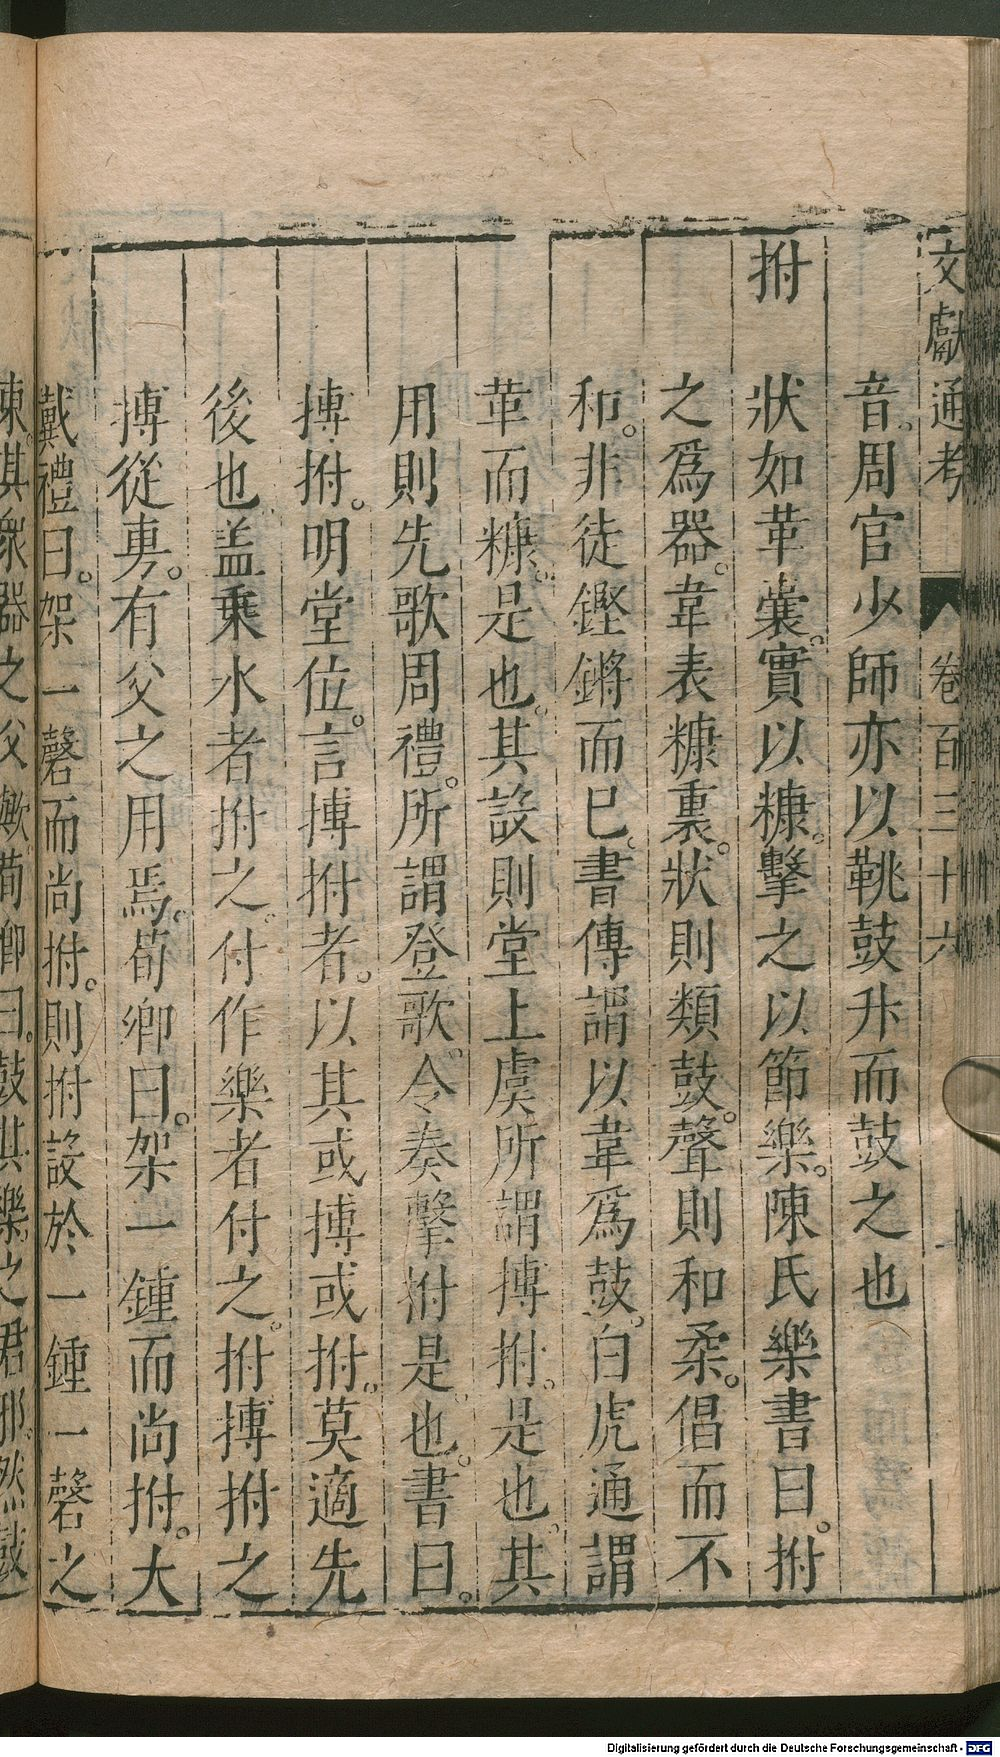 文獻通考 卷百三十六
音周官少師亦以鞉鼓升而鼓之也
拊
狀如革囊。實以糠。擊之以節樂。陳氏樂書曰。拊
之爲器。韋表糠裏。狀則類鼓。聲則和柔。倡而不
和。非徒鏗鏘而已。書傳謂以韋爲鼓。白虎通謂
革而糠。是也。其設則堂上虞所謂搏拊。是也。其
用則先歌周禮。所謂登歌。令奏擊拊是也。書曰。
搏拊。明堂位。言搏拊者。以其或搏或拊。莫適先
後也盖乗水者拊之。付作樂者付之。拊搏拊之
搏從専。有父之用焉。荀卿曰。架一鍾而尚拊。大
戴禮曰。架一磬而尚拊。則拊設於一鍾一磬之
陳。其衆器之父歟。荀卿曰。鼓其樂之君邪。然鼓
Digitalisierung gefördert durch die Deutsche Forschungsgemeinschaft - DFG